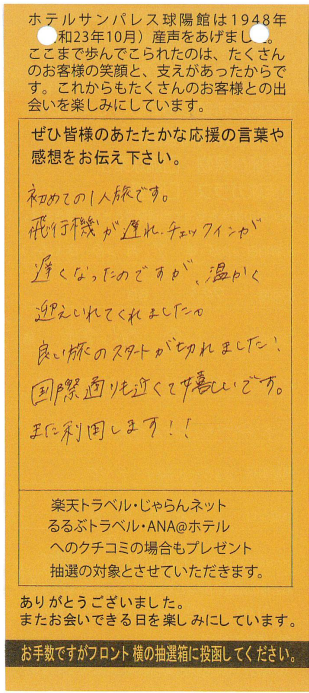 ホテルサンパレス球陽館は1948年
和23年10月）産声をあげました。
ここまで歩んでこられたのは、たくさん
のお客様の笑顔と、支えがあったからで
す。これからもたくさんのお客様との出
会いを楽しみにしています。
ぜひ皆様のあたたかな応援の言葉や
感想をお伝え下さい。
初めての1人旅です。
飛行機が遅れ、チェックインが
遅くなったのですが、温かく
迎えいれてくれました。
良い旅のスタートが切れました!
国際通りも近くて嬉しいです。
また利用します!!
楽天トラベル・じゃらんネット
るるぶトラベル・ANA@ホテル
へのクチコミの場合もプレゼント
抽選の対象とさせていただきます。
ありがとうございました。
またお会いできる日を楽しみにしています。
お手数ですがフロント横の抽選箱に投函してください。